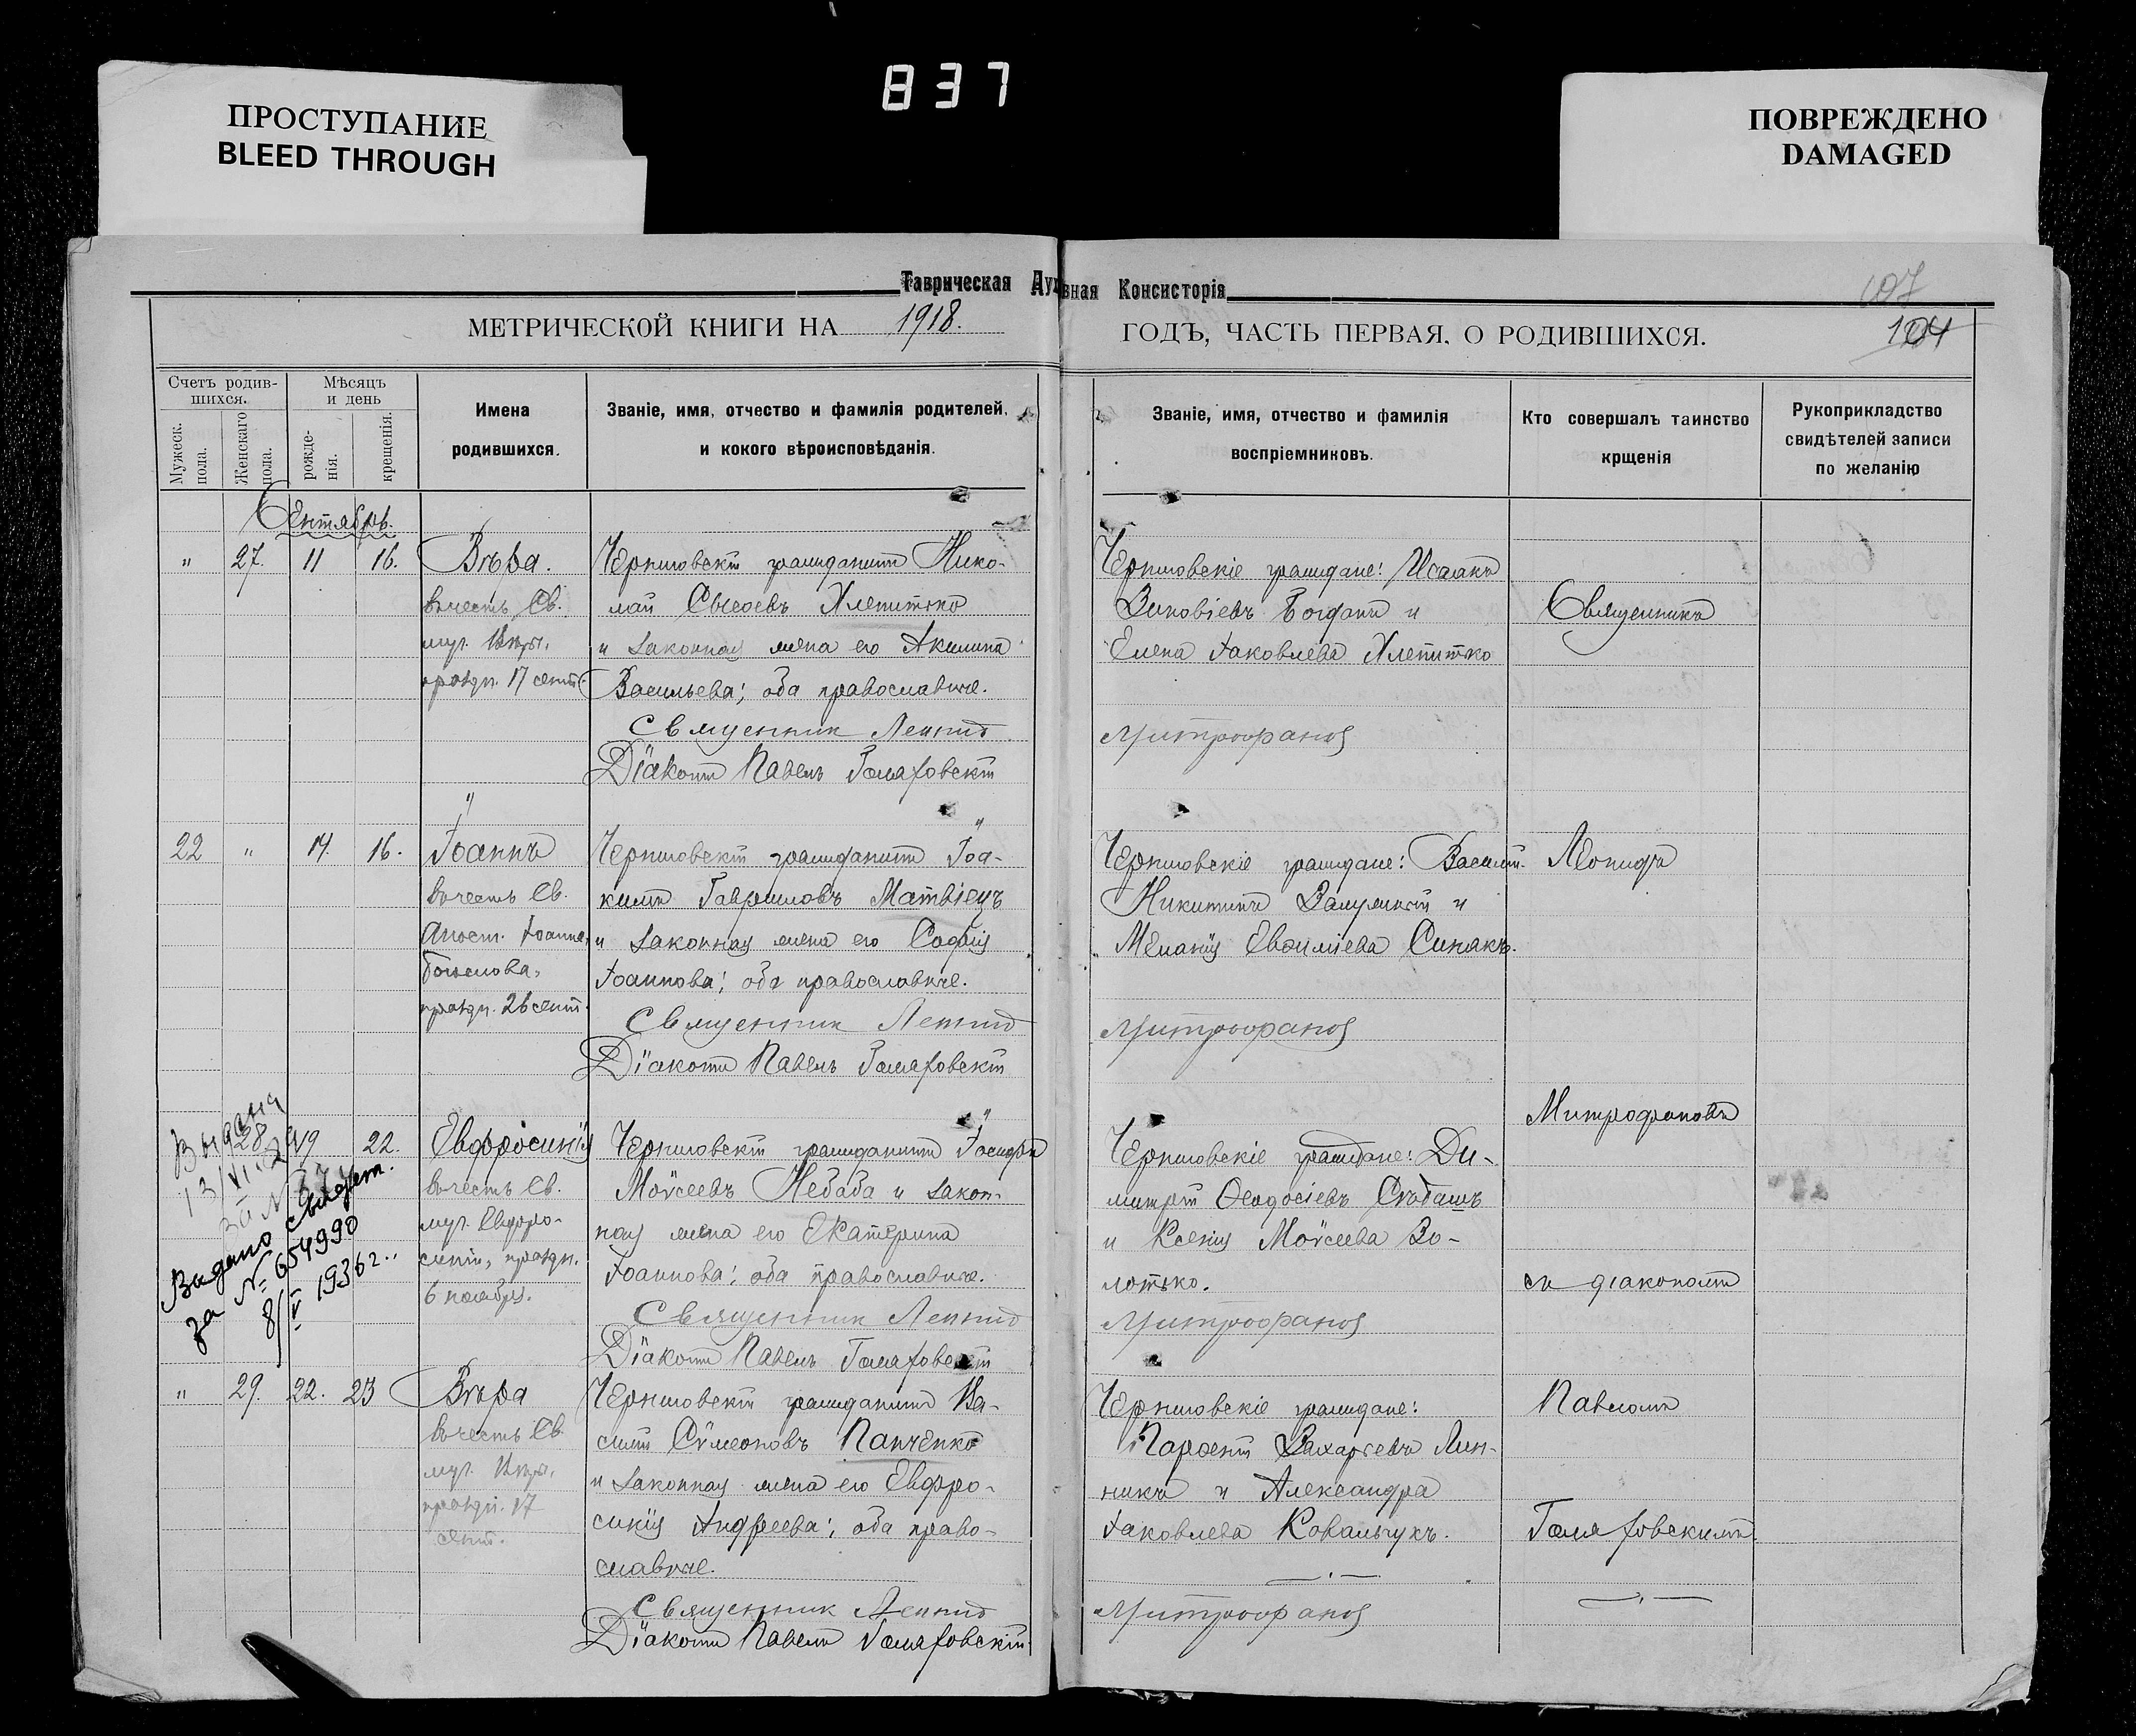 837
ПРОСТУПАНИЕ
BLEED THROUGH
ПОВРЕЖДЕНО
DAMAGED
Таврическая Духовная Консисторія
107
104
МЕТРИЧЕСКОЙ КНИГИ НА 1918. ГОДЪ, ЧАСТЬ ПЕРВАЯ, О РОДИВШИХСЯ.
Счетъ родив-
шихся.
Мужеск.
пола.
Женскаго
пола.
Мѣсяцъ
и день
рожде-
нія.
крещенія.
Имена
родившихся.
Званіе, имя, отчество и фамилія родителей,
и кокого вѣроисповѣданія.
Званіе, имя, отчество и фамилія
воспріемниковъ.
Кто совершалъ таинство
крщенія
Рукоприкладство
свидѣтелей записи
по желанію
Сентябрь.
" 27. 11 16.
Вѣра.
въ честь Св.
муч. Вѣры,
праздн. 17 сент.
Черниговскій гражданинъ Нико-
лай Сысоевъ Хлепитько
и законная жена его Акилина
Васильева; оба православные.
Священник Леонид
Діаконъ Павелъ
Черниговскіе граждане: Исаакъ
Зиновіевъ Богданъ и
Елена Іаковлева Хлепитько
Митрофанов
Священникъ
22 " 14. 16.
Іоаннъ
въ честь Св.
Апост. Іоанна
Богослова,
праздн. 26 сент.
Черниговскій гражданинъ Іоа-
кимъ Гавриловъ Матвіецъ
и законная жена его Софія
Іоаннова; оба православные.
Священник Леонид
Діаконъ Павелъ
Черниговскіе граждане: Василій
Никитинъ и
Меланія Евѳиміева Синякъ.
Митрофанов
Леонидъ
28 19 22.
Евфросинія
въ честь Св.
муч. Евфро-
синіи, праздн.
6 ноября.
Черниговскій гражданинъ Іосифъ
Моѵсеевъ Небаба и закон-
ная жена его Екатерина
Іоаннова; оба православные.
Священник Леонид
Діаконъ Павелъ
Черниговскіе граждане: Ди-
митрій Ѳеодосіевъ
и Ксенія Моѵсеева Зо-
лотько.
Митрофанов
Митрофановъ
съ діакономъ
Выдана
13/VI
за №
Видано свидет.
за № 654990
8/V 1936 г.
" 29. 22. 23
Вѣра
въ честь Св.
муч. Вѣры,
праздн. 17
сент.
Черниговскій гражданинъ Ва-
силій Сѵмеоновъ Панченко
и законная жена его Евфро-
синія Андреева; оба право-
славные.
Священник Леонид
Діаконъ Павелъ
Черниговскіе граждане:
Парѳеній Захаріевъ Лин-
никъ и Александра
Іаковлева Ковальчукъ.
Митрофанов
Павломъ